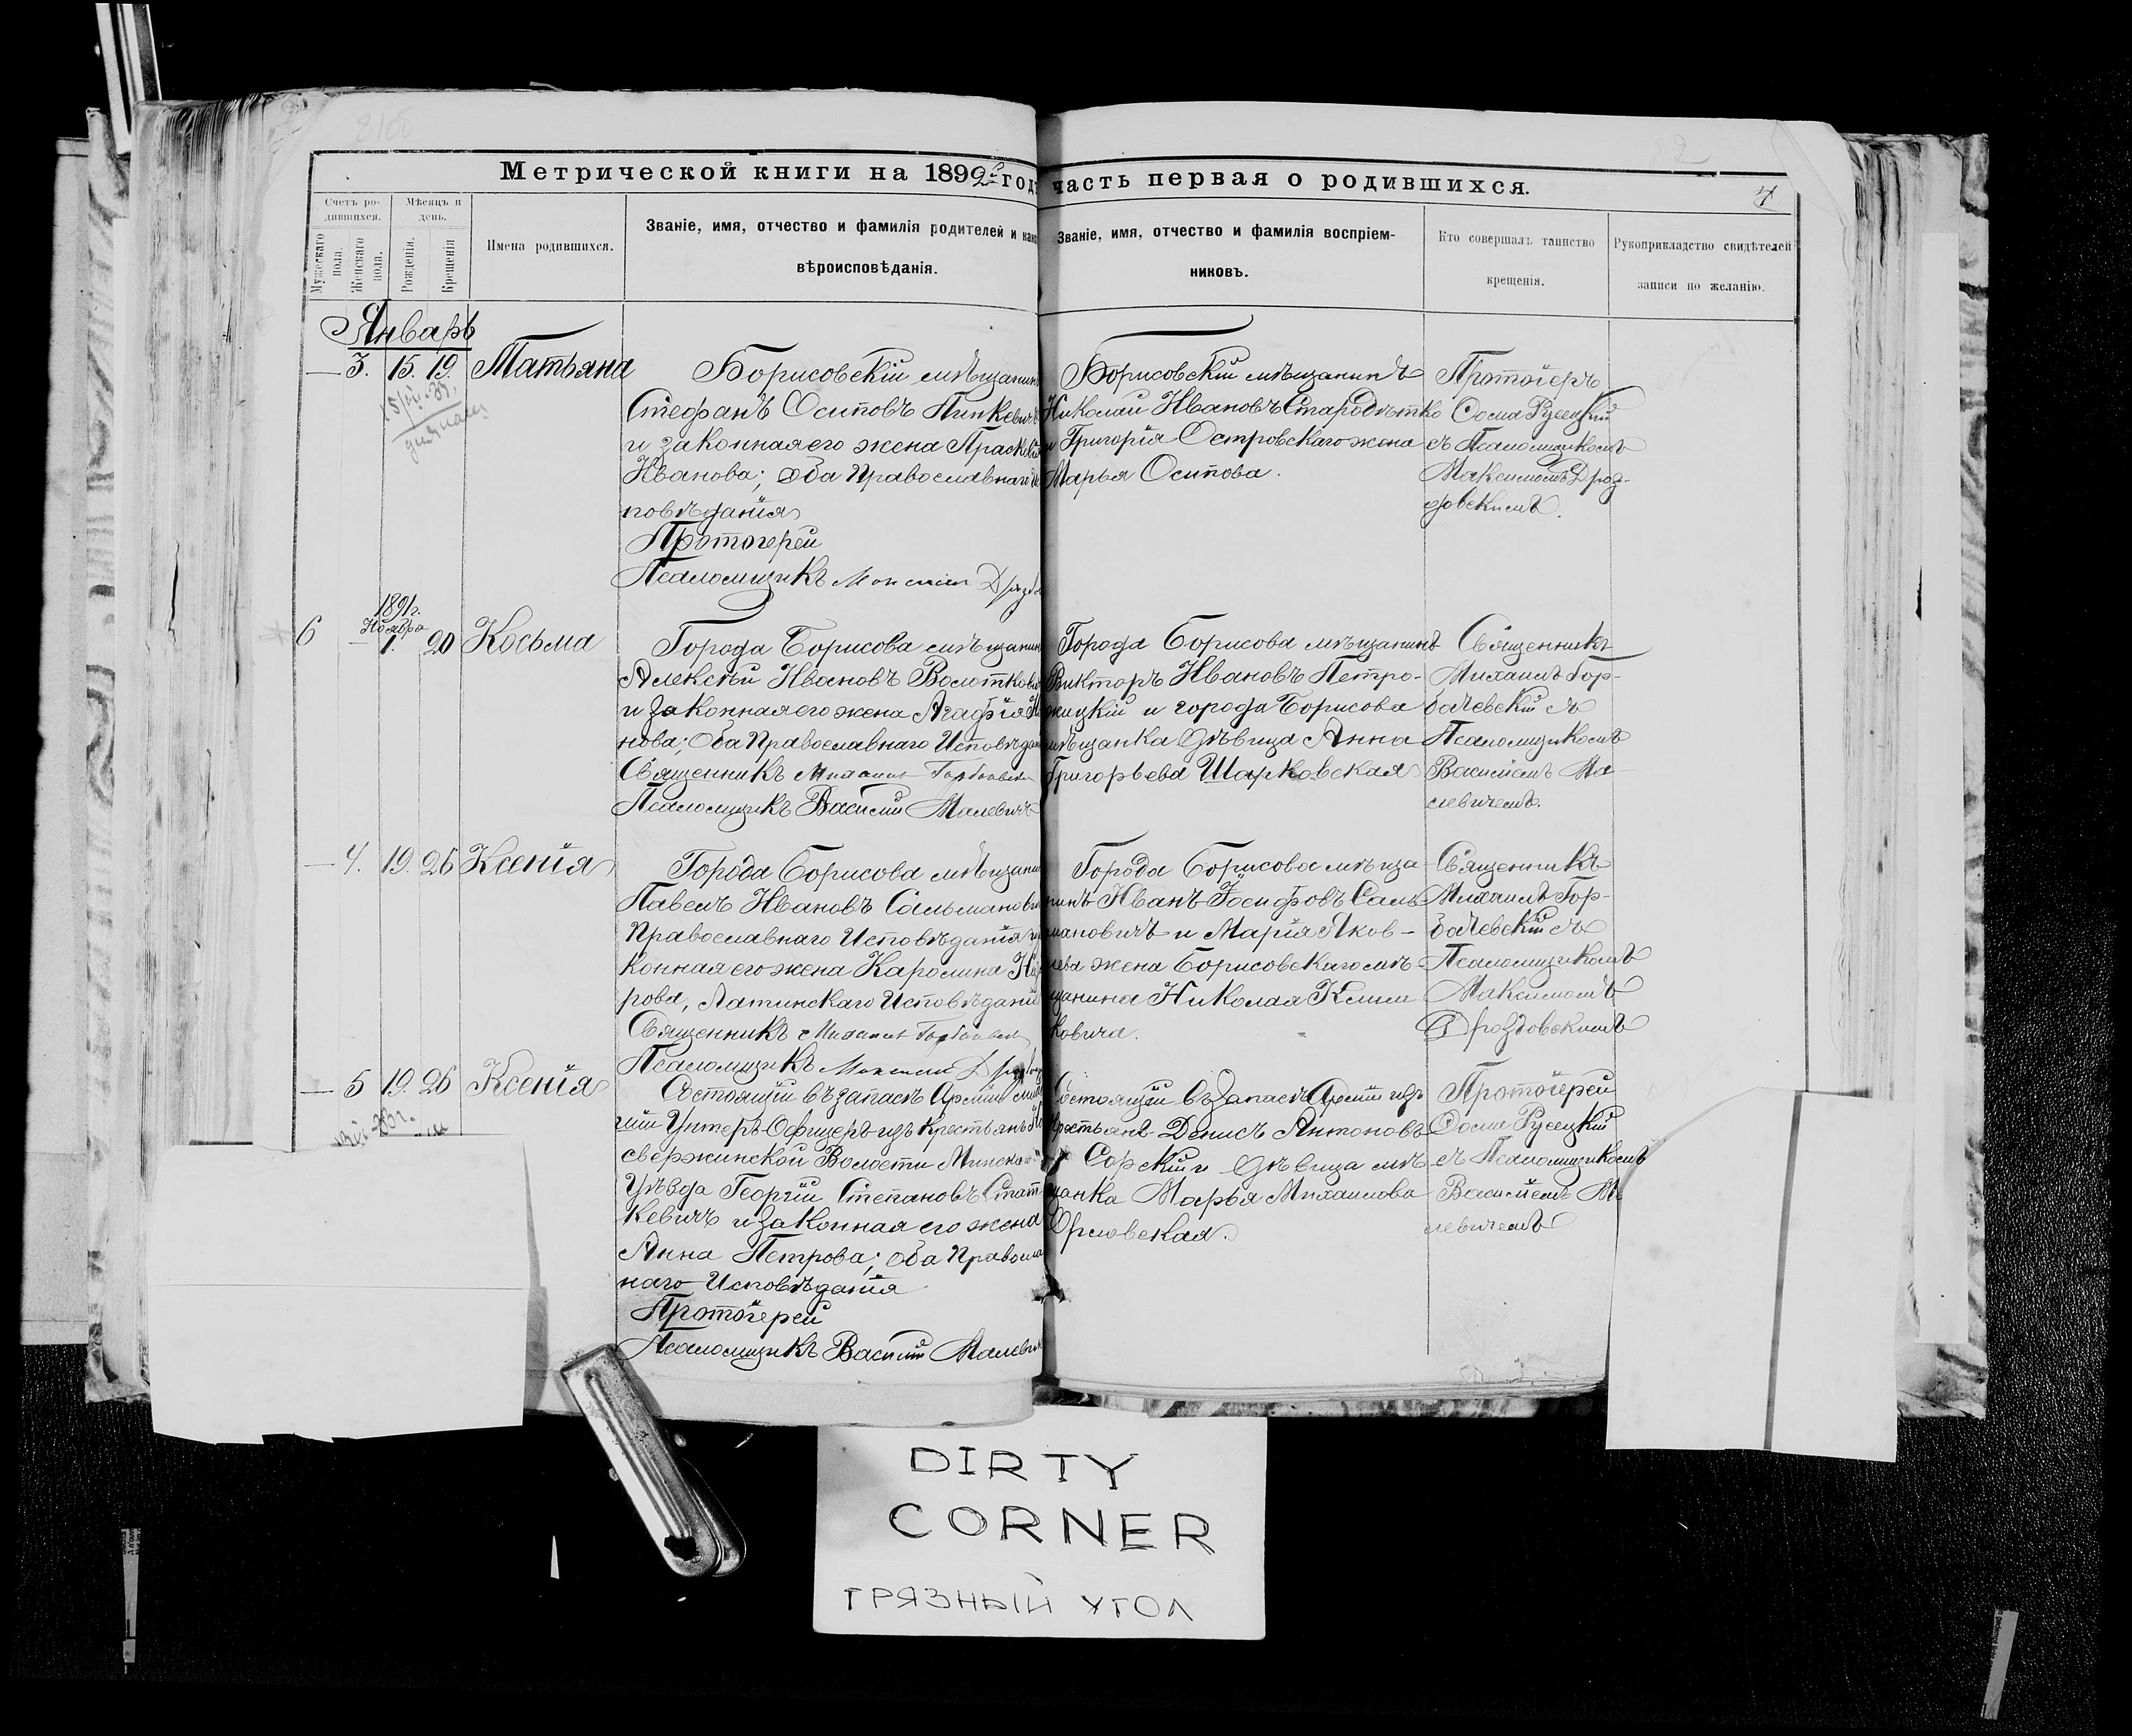 81об
82
Метрической книги на 1892й годъ часть первая о родившихся.
7
Счетъ ро-
дившихся.
Мужескаго
пола.
Женскаго
пола.
Мѣсяцъ и
день.
Рожденія.
Крещенія
Имена родившихся.
Званіе, имя, отчество и фамилія родителей и
вѣроисповѣданія.
Званіе, имя, отчество и фамилія воспріем-
никовъ.
Кто совершалъ таинство
крещенія.
Рукоприкладство свидѣтелей
записи по желанію.
Январь
— 3. 15. 19. Татьяна
Борисовскій мѣщанинъ
Стефанъ Осиповъ
и законная его жена
Иванова; оба Православнаго
повѣданія
Протоіерей
Псаломщикъ
Борисовскій мѣщанинъ
Николай Ивановъ
и Григорія Островскаго жена
Марья Осипова.
Протоіерей
Ѳома Русецкій
съ Псаломщикомъ
Максимомъ Дроз-
довскимъ.
1891г.
Ноября
6 — 1. 20 Косьма
Города Борисова мѣщанинъ
Алексѣй Ивановъ
и законная его жена Агафія
нова; Оба Православнаго
Священникъ Михаилъ
Псаломщикъ Василій Малевичъ
Города Борисова мѣщанинъ
Викторъ Ивановъ Петро-
жицкій и города Борисова
мѣщанка дѣвица Анна
Григорьева Шарковская
Священникъ
Михаилъ Гор-
бачевскій съ
Псаломщикомъ
Василіемъ Ма-
левичемъ.
— 4. 19. 26 Ксенія
Города Борисова
Павелъ Ивановъ
Православнаго Исповѣданія
конная его жена Каролина
рова, Латинскаго Исповѣданія
Священникъ Михаилъ
Псаломщикъ
Города Борисова мѣща-
нинъ Иванъ Іосифовъ Саль-
мановичъ и Марія Яков-
лева жена Борисовскаго мѣ-
щанина Николая Клим-
ковича.
Священникъ
Михаилъ Гор-
бачевскій съ
Псаломщикомъ
Максимомъ
Дроздовскимъ
— 5 19. 26 Ксенія
Состоящій въ запасѣ Арміи
шій Унтеръ-Офицеръ изъ крестьянъ
свержинской Волости Минскаго
Уѣзда Георгій Степановъ
кевичъ и законная его жена
Анна Петрова; оба
наго Исповѣданія
Протоіерей
Псаломщикъ Василій
Состоящій въ Запасѣ Арміи изъ
крестьянъ Денисъ Антоновъ
дѣвица мѣ-
щанка Марья Михайлова
Орловская.
Протоіерей
Ѳома Русецкій
съ Псаломщикомъ
Василіемъ
левичемъ
DIRTY
CORNER
ГРЯЗНЫЙ УГОЛ